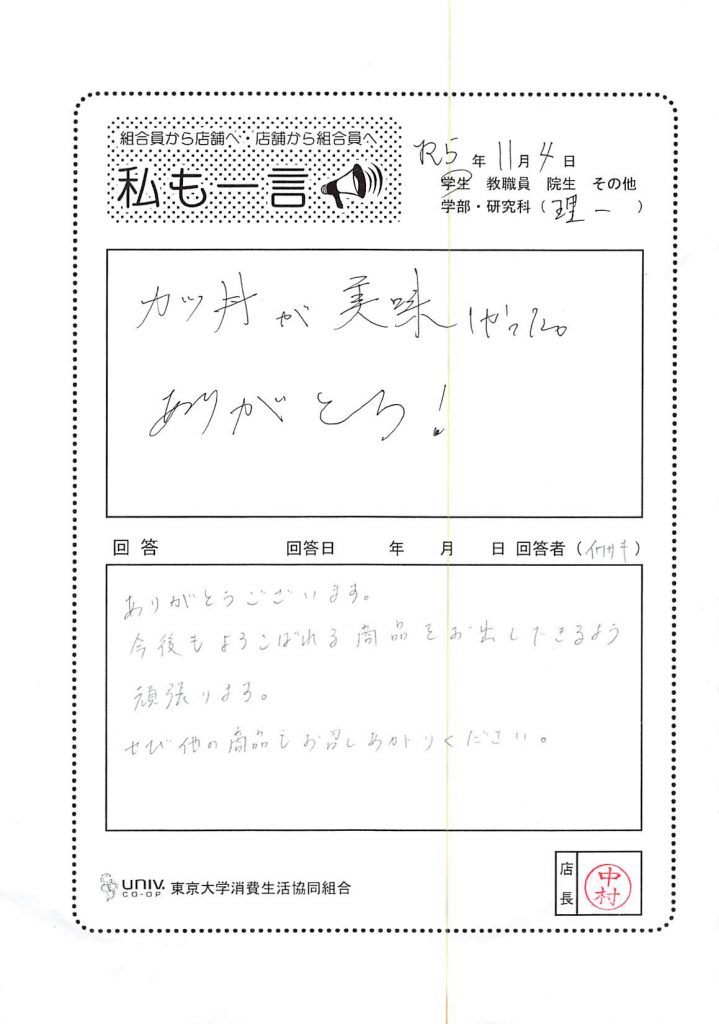 組合員から店舗へ・店舗から組合員へ
私も一言
R5 年 11 月 4 日
学生 教職員 院生 その他
学部・研究科（理一）
カツ丼が美味しかった。
ありがとう！
回答 回答日 年 月 日 回答者（イワサキ）
ありがとうございます。
今後もよろこばれる商品をお出しできるよう
頑張ります。
ぜひ他の商品もお召しあがりください。
UNIV. CO-OP 東京大学消費生活協同組合
店長 中村